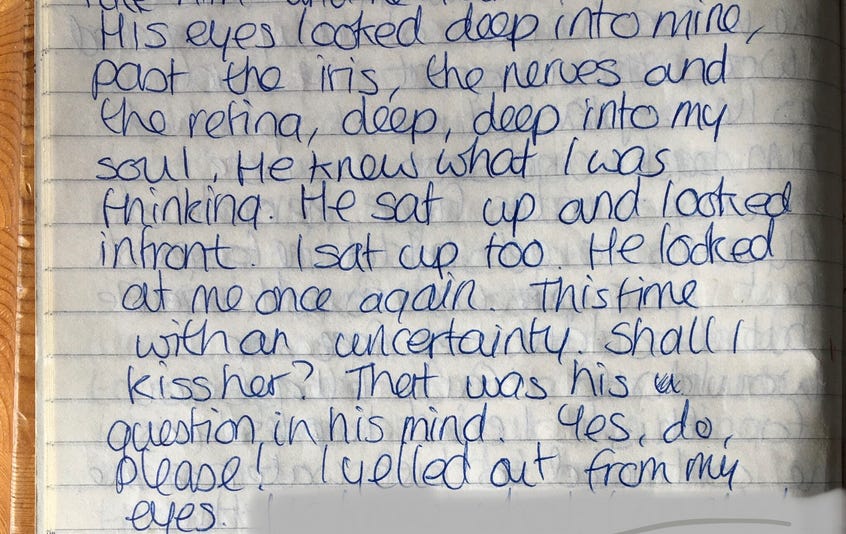 His eyes looked deep into mine,
past the iris, the nerves and
the retina, deep, deep into my
soul. He knew what I was
thinking. He sat up and looked
infront. I sat up too. He looked
at me once again. This time
with an uncertainty. Shall I
kiss her? That was his
question in his mind. Yes, do,
please! I yelled out from my
eyes.